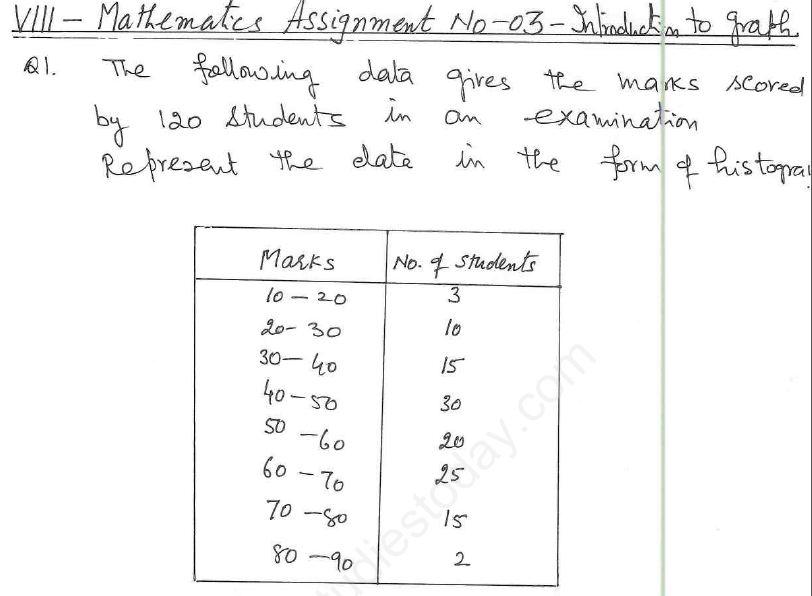 VIII - Mathematics Assignment No-03 - Introduction to graph
Q1. The following data gives the marks scored
by 120 students in an examination
Represent the data in the form of histogra
Marks No. of students
10 - 20 3
20 - 30 10
30 - 40 15
40 - 50 30
50 - 60 20
60 - 70 25
70 - 80 15
80 - 90 2
udiestoday.com